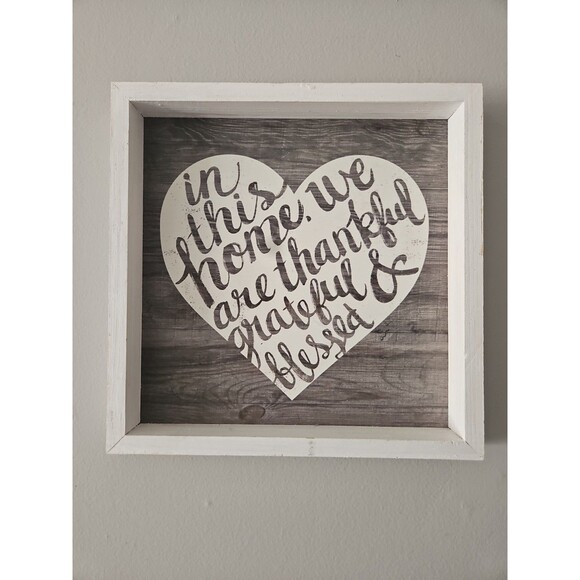 in
this
home, we
are thankful
grateful &
blessed